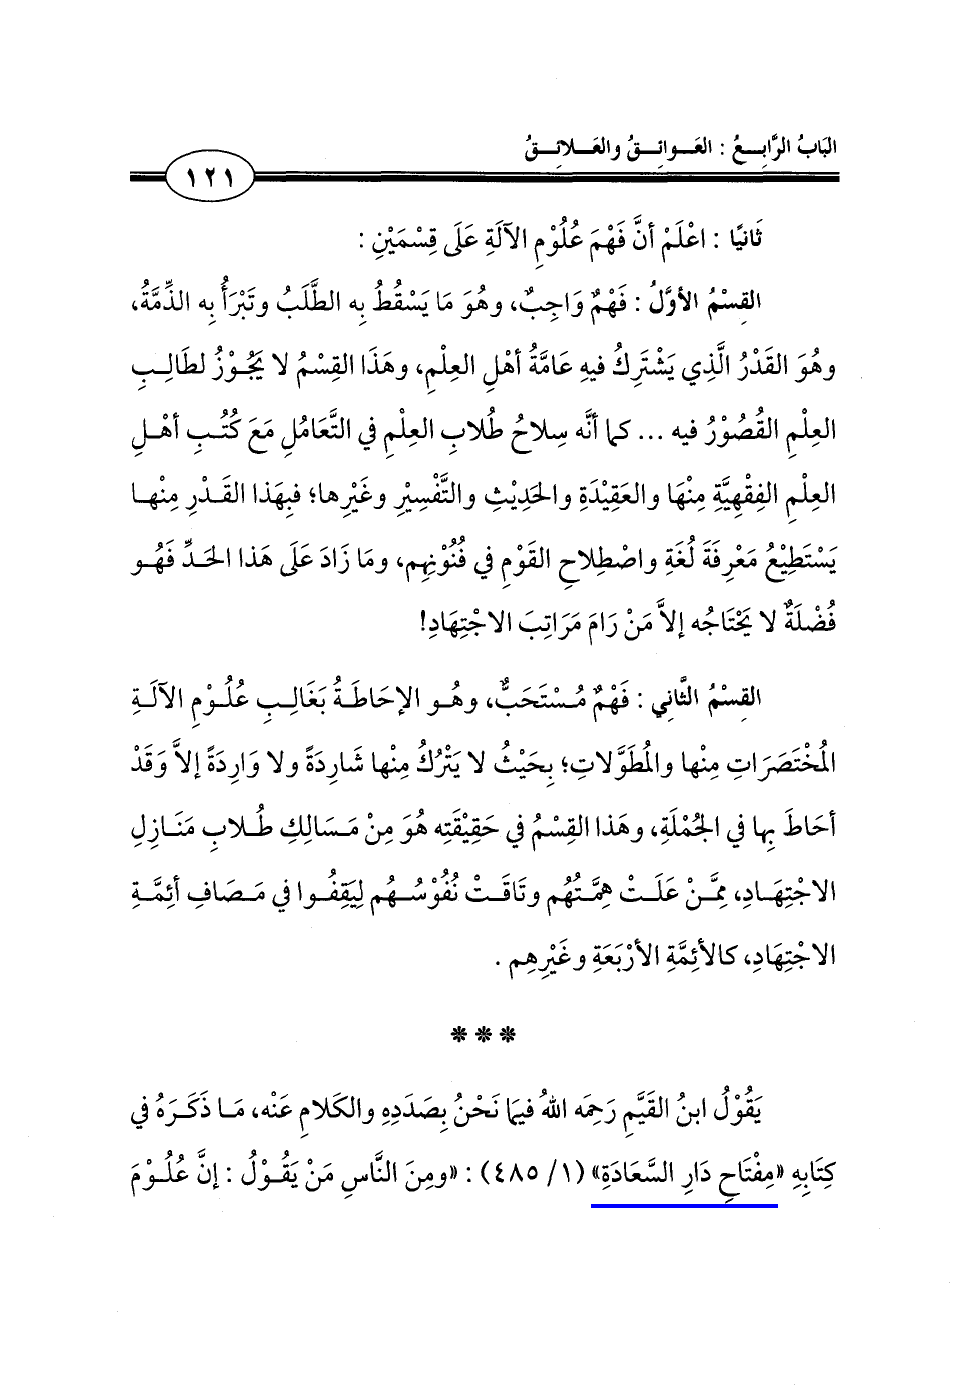 البَابُ الرَّابِعُ : العَوائِقُ والعَلائِقُ
١٢١
ثَانيًا : اعْلَمْ أنَّ فَهْمَ عُلُوْمِ الآلَةِ عَلَى قِسْمَيْنِ :
القِسْمُ الأوَّلُ : فَهْمٌ وَاجِبٌ، وهُوَ مَا يَسْقُطُ به الطَّلَبُ وتَبْرَأُ به الذِّمَّةُ،
وهُوَ القَدْرُ الَّذِي يَشْتَرِكُ فيه عَامَّةُ أهْلِ العِلْمِ، وهَذَا القِسْمُ لا يَجُوْزُ لطَالِبِ
العِلْمِ القُصُوْرُ فيه ... كما أنَّه سِلاحُ طُلابِ العِلْمِ في التَّعَامُلِ مَعَ كُتُبِ أهْلِ
العِلْمِ الفِقْهِيَّةِ مِنْهَا والعَقِيْدَةِ والحَدِيْثِ والتَّفْسِيْرِ وغَيْرِها؛ فبِهَذا القَدْرِ مِنْهَا
يَسْتَطِيْعُ مَعْرِفَةَ لُغَةِ واصْطِلاحِ القَوْمِ في فُنُوْنِهِم، ومَا زَادَ عَلَى هَذا الحَدِّ فَهُو
فُضْلَةٌ لا يَحْتَاجُه إلاَّ مَنْ رَامَ مَرَاتِبَ الاجْتِهَادِ!
القِسْمُ الثَّاني : فَهْمٌ مُسْتَحَبٌّ، وهُو الإحَاطَةُ بغَالِبِ عُلُوْمِ الآلَةِ
المُخْتَصَرَاتِ مِنْها والمُطَوَّلاتِ؛ بحَيْثُ لا يَتْرُكُ مِنْها شَارِدَةً ولا وَارِدَةً إلاَّ وَقَدْ
أحَاطَ بِها في الجُمْلَةِ، وهَذا القِسْمُ في حَقِيْقَتِه هُوَ مِنْ مَسَالِكِ طُلابِ مَنَازِلِ
الاجْتِهَادِ، مِمَّنْ عَلَتْ هِمَّتُهُم وتَاقَتْ نُفُوْسُهُم لِيَقِفُوا في مَصَافِ أئِمَّةِ
الاجْتِهَادِ، كالأئِمَّةِ الأرْبَعَةِ وغَيْرِهِم .
***
يَقُوْلُ ابنُ القَيَّمِ رَحِمَه اللهُ فيما نَحْنُ بِصَدَدِهِ والكَلامِ عَنْه، مَا ذَكَرَهُ في
كِتَابِهِ «مِفْتَاحِ دَارِ السَّعَادَةِ» (١/ ٤٨٥) : «ومِنَ النَّاسِ مَنْ يَقُوْلُ : إنَّ عُلُوْمَ